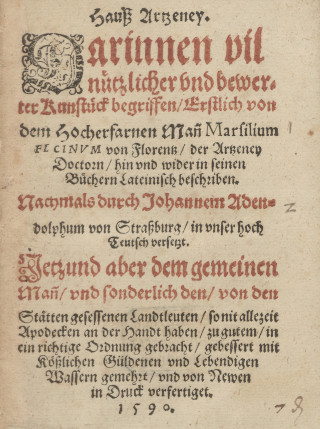 Hauß Artzeney.
Darinnen vil
nützlicher vnd bewer-
ter Kunstück begriffen / Erstlich von
dem Hocherfarnen Mañ Marsilium
FICINVM von Florentz / der Artzeney
Doctorn / hin vnd wider in seinen
Büchern Lateinisch beschriben.
Nachmals durch Johannem Aden-
dolphum von Straßburg / in vnser hoch
Teutsch versetzt.
Jetzund aber dem gemeinen
Mañ / vnd sonderlich den / von den
Stätten gesessenen Landtleuten / so nit allezeit
Apodecken an der Handt haben / zu gutem / in
ein richtige Ordnung gebracht / gebessert mit
Kößlichen Güldenen vnd Lebendigen
Wassern gemehrt / vnd von Newen
in Druck verfertiget.
1590.